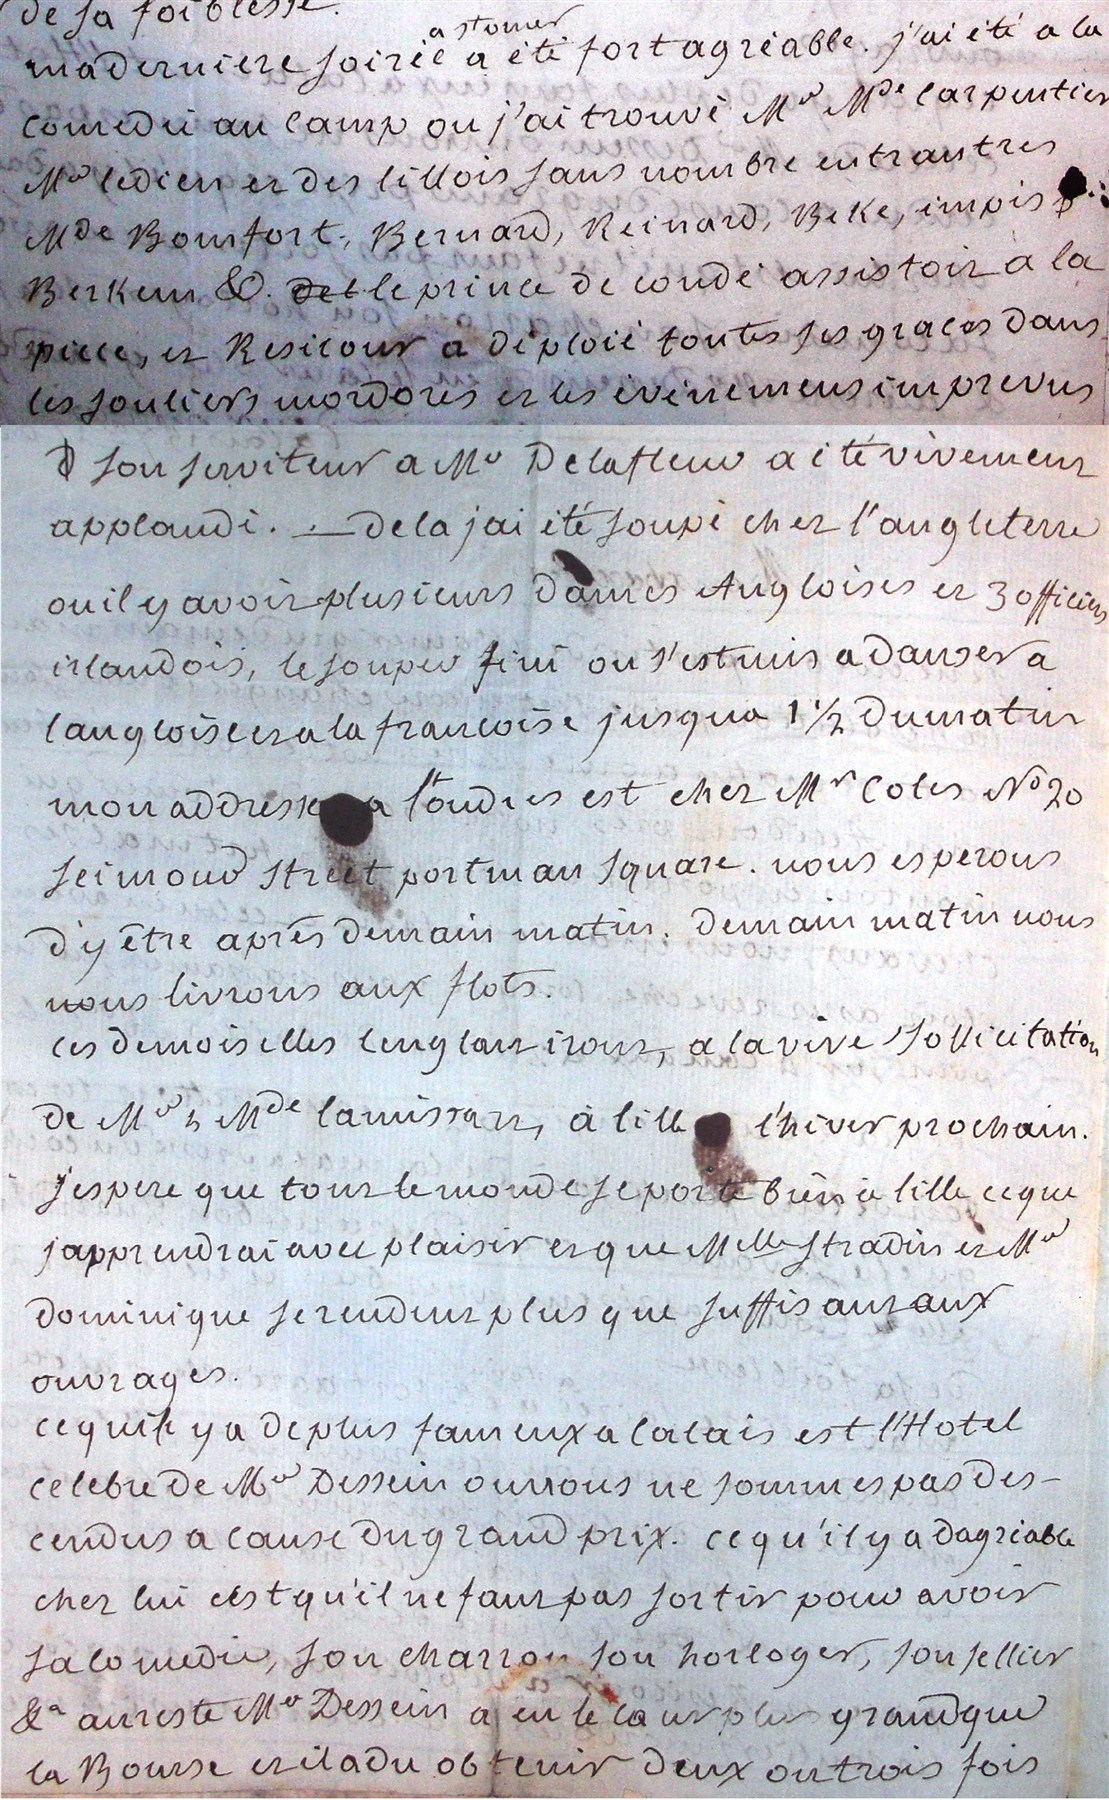 de sa foiblesse.
a st omer
ma derniere soirée a été fort agréable. j'ai été a la
comedie au camp ou j'ai trouvé Mr Mde Carpentier
Mr ledien et des lillois sans nombre entrautres
Mde Bomfort, Bernard, Reinard, Beke, impis
Berkem &. le prince de condé assistoit a la
piece, et Resicour a déploié toutes ses graces dans
les souliers mordorés et les évènemens imprevus
son serviteur a Mr Delafleur a été vivement
applaudi. — dela jai été soupé chez l'angleterre
ou il y avoit plusieurs dames Angloises et 3 officiers
irlandois, le souper fini on s'est mis a danser a
langloise et a la francoise jusqua 1 1/2 du matin
mon addresse a londres est chez Mr Coles No 20
seimour street portman square. nous esperons
d'y être après demain matin. demain matin nous
nous livrons aux flots.
les demoiselles lenglart iront, a la vive sollicitation
de Mr & Mde lamissart, à lille l'hiver prochain.
j'espere que tout le monde se porte bien à lille ce que
j'apprendrai avec plaisir et que Melle stradin et Mr
dominique se rendent plus que suffisant aux
ouvrages.
ce quil y a de plus fameux a Calais est l'Hotel
celebre de Mr Dessein ou nous ne sommes pas des-
cendus a cause du grand prix. ce qu'il y a dagréable
chez lui c'est qu'il ne faut pas sortir pour avoir
sa comedie, son charron son horloger, son sellier
&a au reste Mr Dessein a eu le cœur plus grand que
la Bourse et il a du obtenir deux ou trois fois